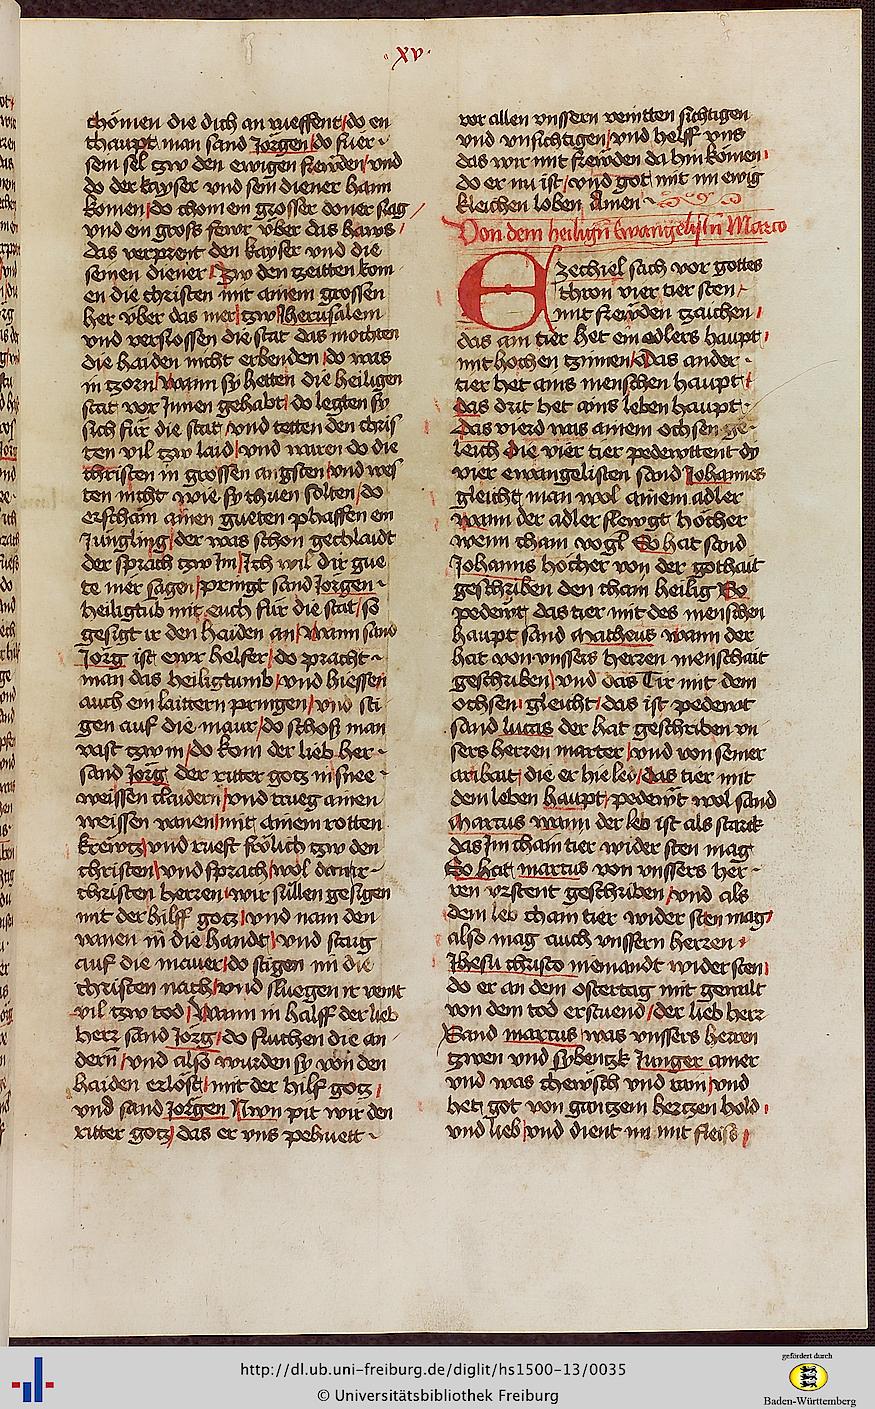 xv
chömen die dich an rueffent / do en
thaupt man sand Jörgen / do fuer
sein sel tzw den ewigen frewden / vnd
do der kayser vnd sein diener haim
komen / do chom ein grosser doner slag /
vnd ein gross fewr vber das haws /
das verprent den kayser vnd die
seinen diener / Tzw den tzeitten kom
en die christen mit ainem grossen
her vber das mer / tzw Jherusalem
vnd verslossen die stat das mochten
die haiden nicht erbenden / do was
in tzorn / wann sy hetten die heiligen
stat vor Innen gehabt / do legten sy
sich für die stat / vnd tetten den chris
ten vil tzw laid / vnd waren do die
christen in grossen angsten / vnd wes
ten nicht wie sy thuen solten / do
erscham ainen gueten phaffen ein
Jungling / der was schon gechlaidt
der sprach tzw Im / Ich wil dir gue
te mer sagen / pringt sand Jorgen
heiligtub mit euch für die stat / so
gesigt ir den haiden an / Wann sand
Jörg ist ewr helfer / do pracht
man das heiligtumb / vnd hiessen
auch ein laittern pringen / vnd sti
gen auf die maur / do schoß man
vast tzw in / do kom der lieb her
sand Jörg der ritter gotz in snee
weissen claidern / vnd trueg ainen
weissen vanen / mit ainem rotten
krewtz / vnd rueft frölich tzw den
christen / vnd sprach / wol dan ir
christen herren / wir süllen gesigen
mit der hilff gotz / vnd nam den
vanen in die handt / vnd staig
auf die mauer / do stigen im die
christen nach / vnd sluegen ir veint
vil tzw tod / Wann in halff der lieb
herr sand Jörg / do fluchen die an
dern / vnd also wurden sy von den
haiden erlöst / mit der hilf gotz /
vnd sand Jörgen Nwn pit wir den
ritter gotz / das er vns pehuett
vor allen vnssern veintten sichtigen
vnd vnsichtigen / vnd helff vns
das wir mit frewden da hin komen /
do er nu ist / vnd got mit im ewig
kleichen loben Amen
Von dem heilign Ewangelistn Marco
Ezechiel sach vor gottes
thron vier tier sten /
mit frewden tzaichen /
das ain tier het ein adlers haupt /
mit hochen tzinnen / Das ander
tier het ains menschen haupt /
das drit het ains leben haupt
das vierd was ainem ochsen ge
leich Die vier tier pedewttent dy
vier ewangelisten sand Johannes
gleicht man wol ainem adler
wann der adler flewgt höcher
wenn cham vogl So hat sand
Johanns höcher von der gothait
geschriben den cham heilig So
pedewt das tier mit des menschen
haupt sand Matheus wann der
hat von vnssers herren menschait
geschriben / vnd das Tir mit dem
ochsen / gleicht / das ist pedewt
sand lucas der hat geschriben vn
sers herren marter / vnd von seiner
aribait / die er hie led / das tier mit
dem leben haupt / pedewt wol sand
Marcus wann der leb ist als starck
das Im cham tier wider sten mag
So hat marcus von vnssers her
ren vrstent geschriben / vnd als
dem leb cham tier wider sten mag /
also mag auch vnssern herren /
Jhesu christo niemandt wider sten /
do er an dem ostertag mit gewalt
von dem tod erstuend / der lieb herr
Sand marcus was vnssers herren
tzwen vnd sybentzk Junger ainer
vnd was chewsch vnd rain / vnd
het got von gantzem hertzen hold /
vnd lieb / vnd dient im mit fleiss /
http://dl.ub.uni-freiburg.de/diglit/hs1500-13/0035
© Universitätsbibliothek Freiburg
gefördert durch
Baden-Württemberg